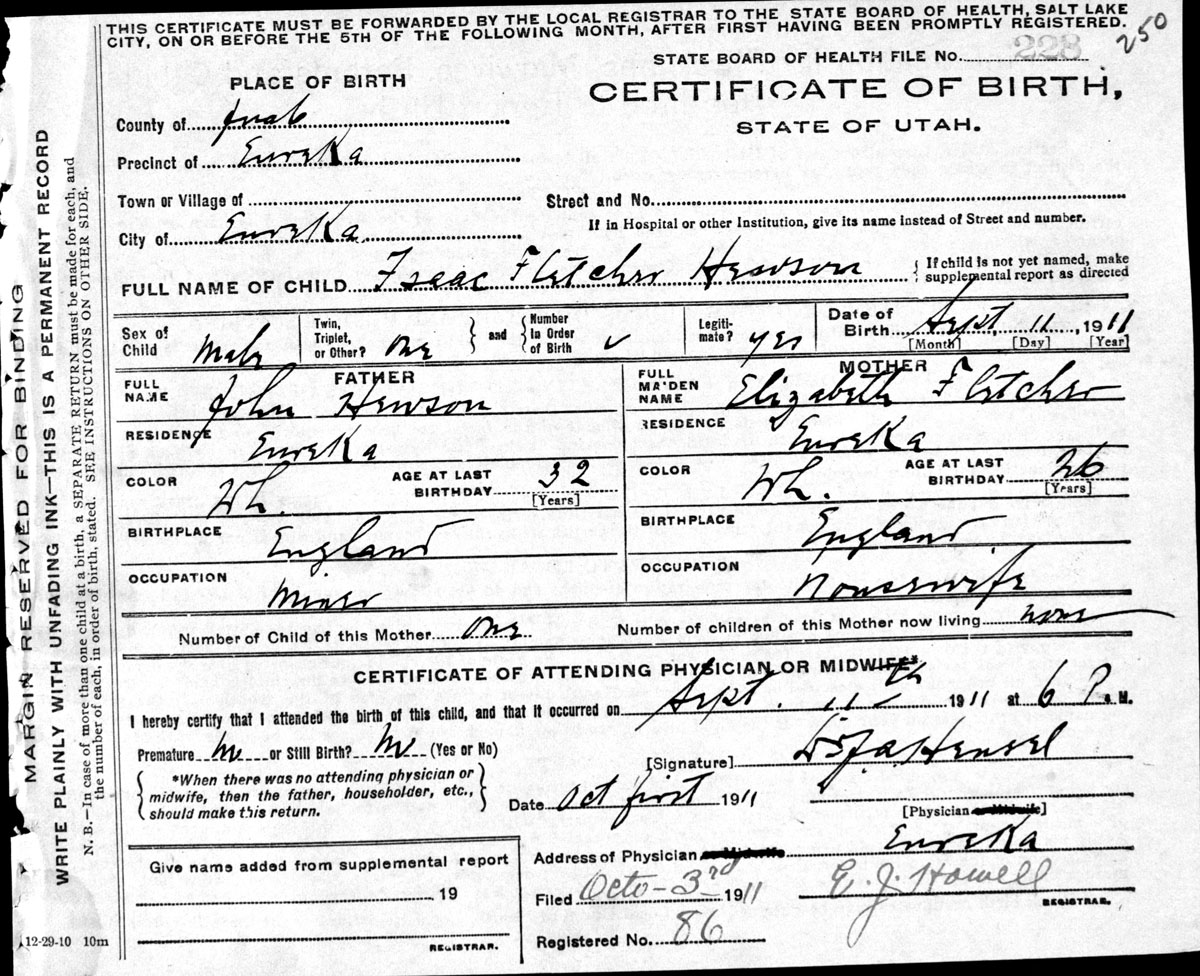 THIS CERTIFICATE MUST BE FORWARDED BY THE LOCAL REGISTRAR TO THE STATE BOARD OF HEALTH, SALT LAKE
CITY, ON OR BEFORE THE 5TH OF THE FOLLOWING MONTH, AFTER FIRST HAVING BEEN PROMPTLY REGISTERED.
250
STATE BOARD OF HEALTH FILE No. 228
PLACE OF BIRTH
CERTIFICATE OF BIRTH,
STATE OF UTAH.
County of Juab
Precinct of Eureka
Town or Village of
Street and No.
City of Eureka
If in Hospital or other Institution, give its name instead of Street and number.
FULL NAME OF CHILD Isaac Fletcher Hewson
{ If child is not yet named, make
supplemental report as directed
Sex of Child Male
Twin, Triplet, or Other? One } and { Number In Order of Birth
Legiti-mate? yes
Date of Birth Sept 11, 1911
[Month] [Day] [Year]
FATHER
FULL NAME John Hewson
MOTHER
FULL MAIDEN NAME Elizabeth Fletcher
RESIDENCE Eureka
RESIDENCE Eureka
COLOR Wh. AGE AT LAST BIRTHDAY 32 [Years]
COLOR Wh. AGE AT LAST BIRTHDAY 26 [Years]
BIRTHPLACE England
BIRTHPLACE England
OCCUPATION Miner
OCCUPATION Housewife
Number of Child of this Mother One
Number of children of this Mother now living none
CERTIFICATE OF ATTENDING PHYSICIAN OR MIDWIFE*
I hereby certify that I attended the birth of this child, and that it occurred on Sept. 11th 1911 at 6 P. M.
Premature No or Still Birth? No (Yes or No)
[Signature] Dr J A Hensel
{ *When there was no attending physician or
midwife, then the father, householder, etc.,
should make this return. }
Date Oct first 1911
[Physician or Midwife]
Address of Physician or Midwife Eureka
Give name added from supplemental report
19
REGISTRAR.
Filed Octo-3rd 1911 E. J. Howell
REGISTRAR.
Registered No. 86
12-29-10 10m
MARGIN RESERVED FOR BINDING
WRITE PLAINLY WITH UNFADING INK—THIS IS A PERMANENT RECORD
N. B.—In case of more than one child at a birth, a SEPARATE RETURN must be made for each, and
the number of each, in order of birth, stated. SEE INSTRUCTIONS ON OTHER SIDE.